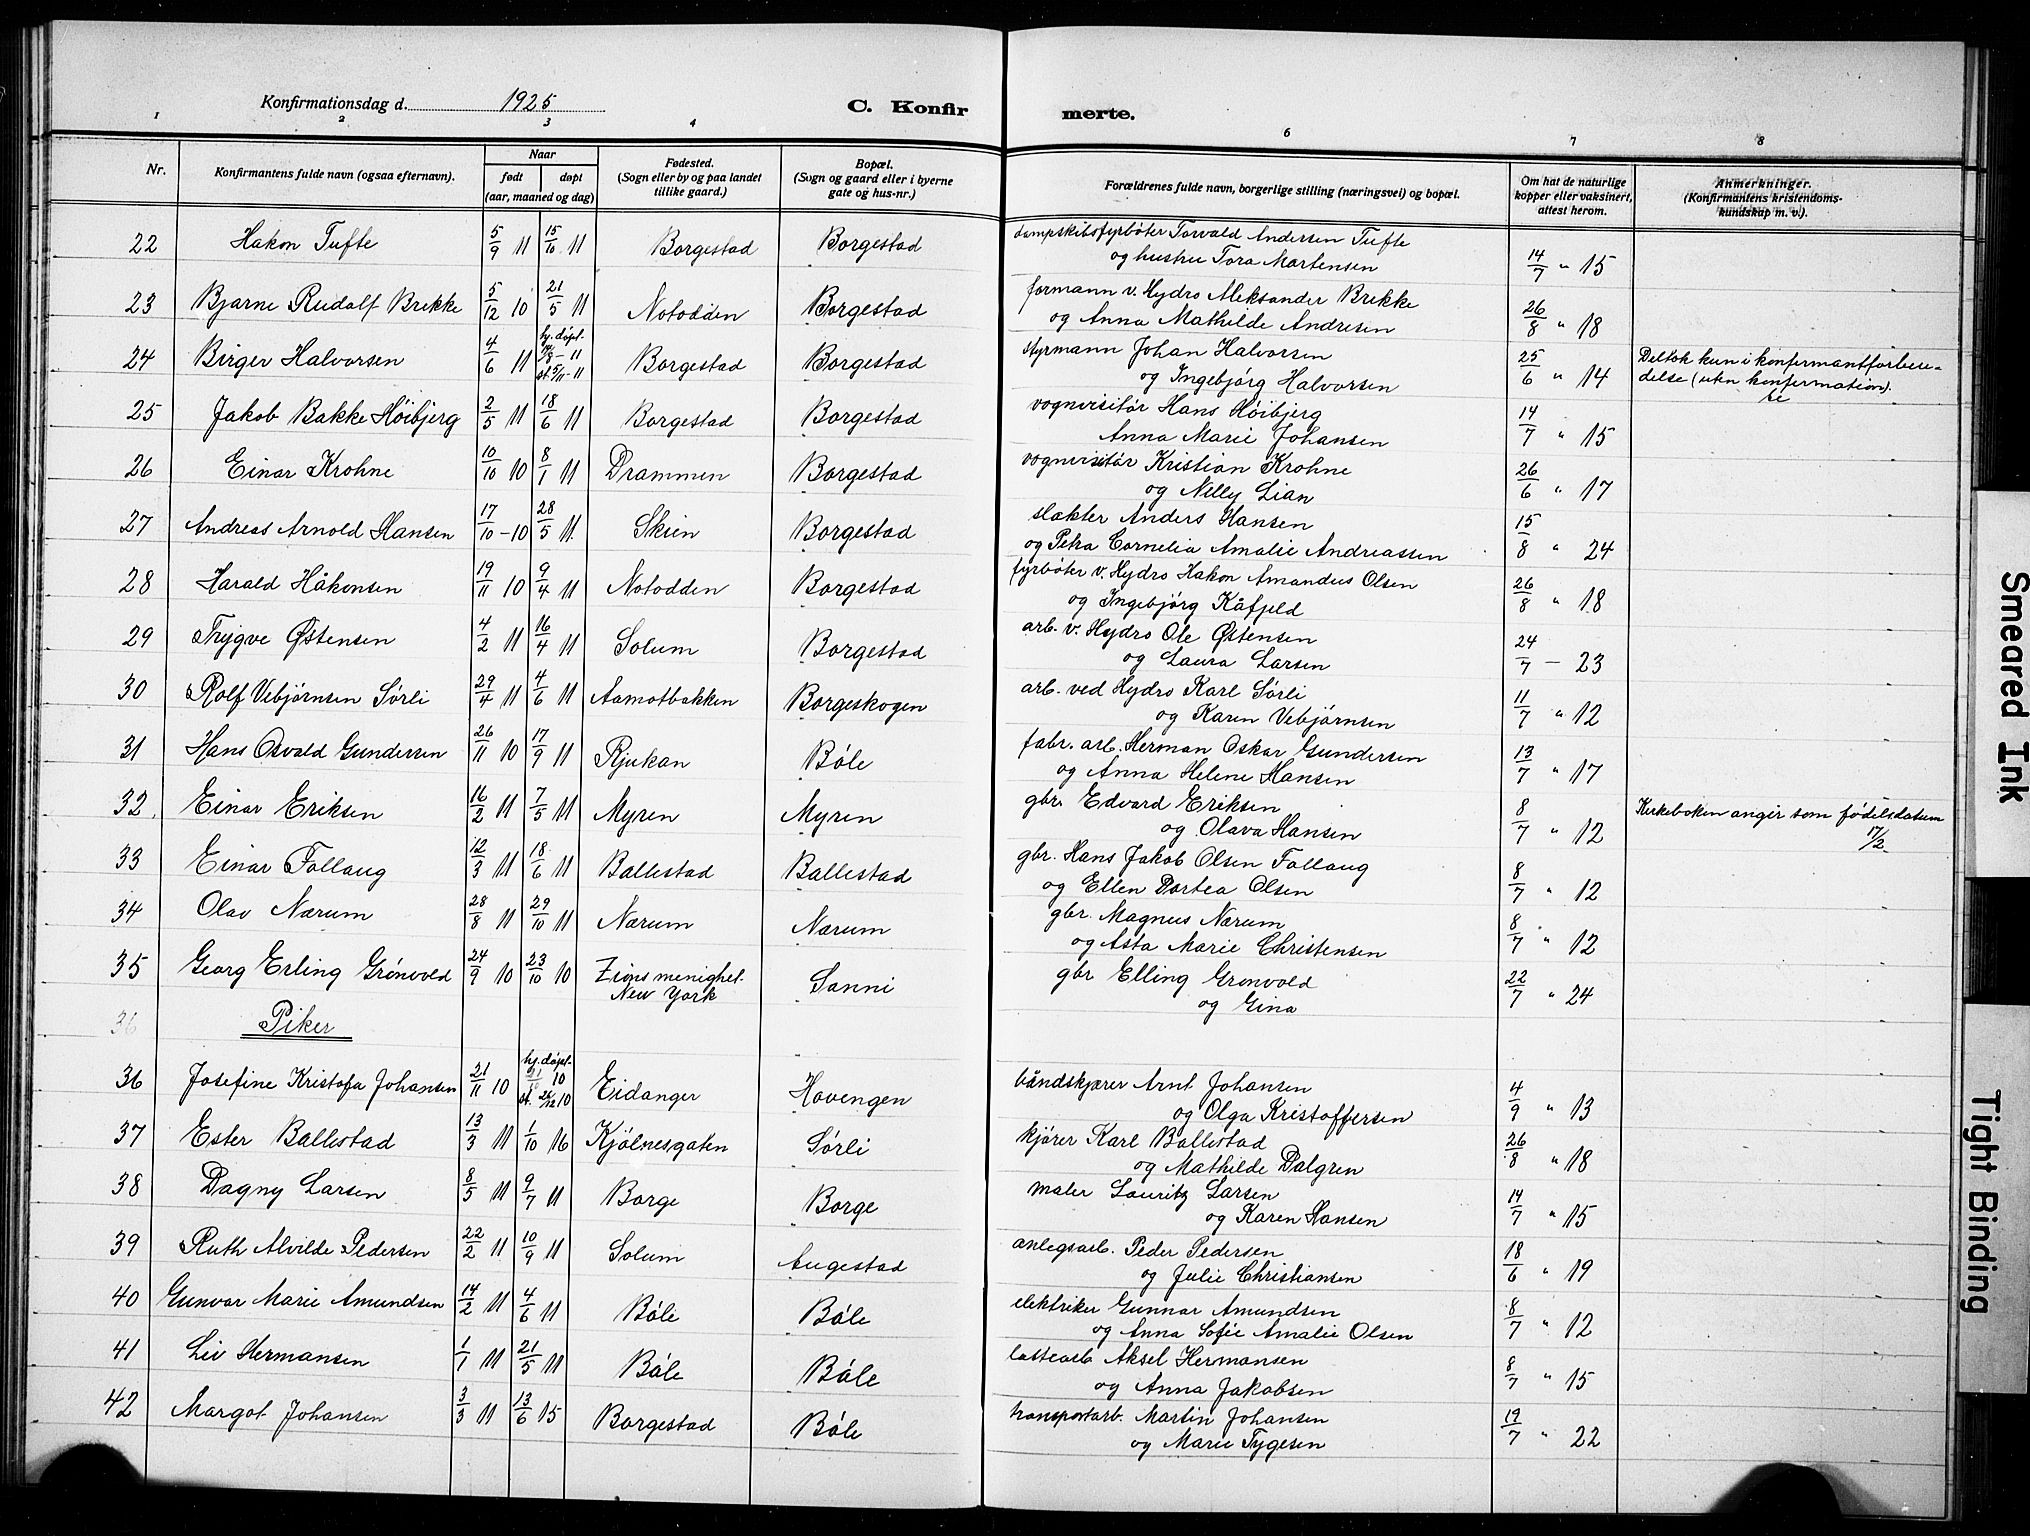 Konfirmationsdag d. 1925
C. Konfir
merte.
1 2 3 4 6 7 8
Nr.
Konfirmantens fulde navn (ogsaa efternavn).
Naar
født
døpt
(aar, maaned og dag)
Fødested.
(Sogn eller by og paa landet
tillike gaard.)
Bopæl.
(Sogn og gaard eller i byerne
gate og hus-nr.)
Forældrenes fulde navn, borgerlige stilling (næringsvei) og bopæl.
Om hat de naturlige
kopper eller vaksinert,
attest herom.
Anmerkninger.
(Konfirmantens kristendoms-
kundskap m. v.).
22 Hakon Tufte 5/9 11 15/10 11 Borgestad Borgestad dampskibsfyrbøter Torvald Andersen Tufte
og hustru Tora Martensen 14/7 " 15
23 Bjarne Rudolf Brekke 5/12 10 21/5 11 Notodden Borgestad formann v. Hydro Aleksander Brekke
og Anna Mathilde Andresen 26/8 " 18
24 Birger Halvorsen 4/6 11 hj. døpt 11 st. 5/11-11 Borgestad Borgestad styrmann Johan Halvorsen
og Ingebjørg Halvorsen 25/6 " 14 Deltok kun i konfirmantforbere-
delse (uten konfirmation).
25 Jakob Bakke Høibjerg 2/5 11 18/6 11 Borgestad Borgestad vognvisitør Hans Høibjerg
Anna Marie Johansen 14/7 " 15
26 Einar Krohne 10/10 10 8/1 11 Drammen Borgestad vognvisitør Kristian Krohne
og Nelly Lian 26/6 " 17
27 Andreas Arnold Hansen 17/10 - 10 28/5 11 Skien Borgestad slakter Anders Hansen
og Petra Cornelia Amalie Andreassen 15/8 " 24
28 Harald Håkonsen 19/11 10 9/4 11 Notodden Borgestad fyrbøter v. Hydro Hakon Amandus Olsen
og Ingebjørg Kåfjeld 26/8 " 18
29 Trygve Østensen 4/2 11 16/4 11 Solum Borgestad arb. v. Hydro Ole Østensen
og Laura Larsen 24/7 - 23
30 Rolf Vebjørnsen Sørli 29/4 11 4/6 11 Aamotbakken Borgeskogen arb. ved Hydro Karl Sørli
og Karen Vebjørnsen 11/7 " 12
31 Hans Osvald Gundersen 26/11 10 17/9 11 Rjukan Bøle fabr. arb. Herman Oskar Gundersen
og Anna Helene Hansen 13/7 " 17
32. Einar Eriksen 16/2 11 7/5 11 Myren Myren gbr. Edvard Eriksen
og Olava Hansen 8/7 " 12 Kirkeboken angir som fødselsdatum
17/2
33 Einar Follaug 12/3 11 18/6 11 Ballestad Ballestad gbr. Hans Jakob Olsen Follaug
og Ellen Dortea Olsen 8/7 " 12
34 Olav Nærum 28/8 11 29/10 11 Nærum Nærum gbr. Magnus Nærum
og Asta Marie Christensen 8/7 " 12
35 Georg Erling Grønvold 24/9 10 23/10 10 Zions menighet
New York Sanni gbr Elling Grønvold
og Gina 22/7 " 24
36 Piker
36 Josefine Kristofa Johansen 21/11 10 hj. døpt 10 st. 26/12 10 Eidanger Hovengen båndskjærer Arnt Johansen
og Olga Kristoffersen 4/9 " 13
37 Ester Ballestad 13/3 11 1/10 16 Kjølnesgaten Sørli kjører Karl Ballestad
og Mathilde Dalgren 26/8 " 18
38 Dagny Larsen 8/5 11 9/7 11 Borge Borge maler Lauritz Larsen
og Karen Hansen 14/7 " 15
39 Ruth Alvilde Pedersen 22/2 11 10/9 11 Solum Augestad anlegsarb. Peder Pedersen
og Julie Christiansen 18/6 " 19
40 Gunvor Marie Amundsen 14/2 11 4/6 11 Bøle Bøle elektriker Gunnar Amundsen
og Anna Sofie Amalie Olsen 8/7 " 12
41 Liv Hermansen 1/1 11 21/5 11 Bøle Bøle lastearb Aksel Hermansen
og Anna Jakobsen 8/7 " 15
42 Margot Johansen 3/3 11 13/6 15 Borgestad Bøle transportarb. Martin Johansen
og Marie Tygesen 19/7 " 22
Smeared Ink
Tight Binding